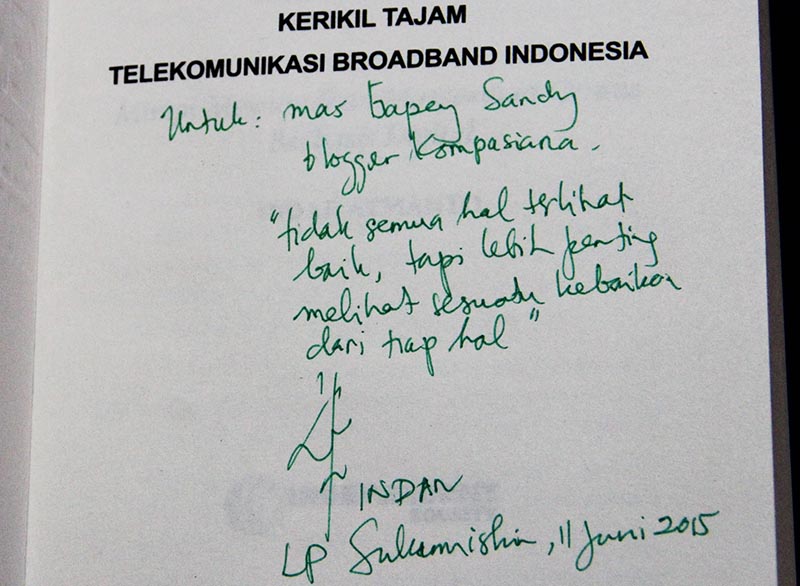 KERIKIL TAJAM
TELEKOMUNIKASI BROADBAND INDONESIA
Untuk: mas Gapey Sandy
blogger Kompasiana.
"tidak semua hal terlihat
baik, tapi lebih penting
melihat sesuatu kebaikan
dari tiap hal"
INDAR
LP Sukamiskin, 11 Juni 2015